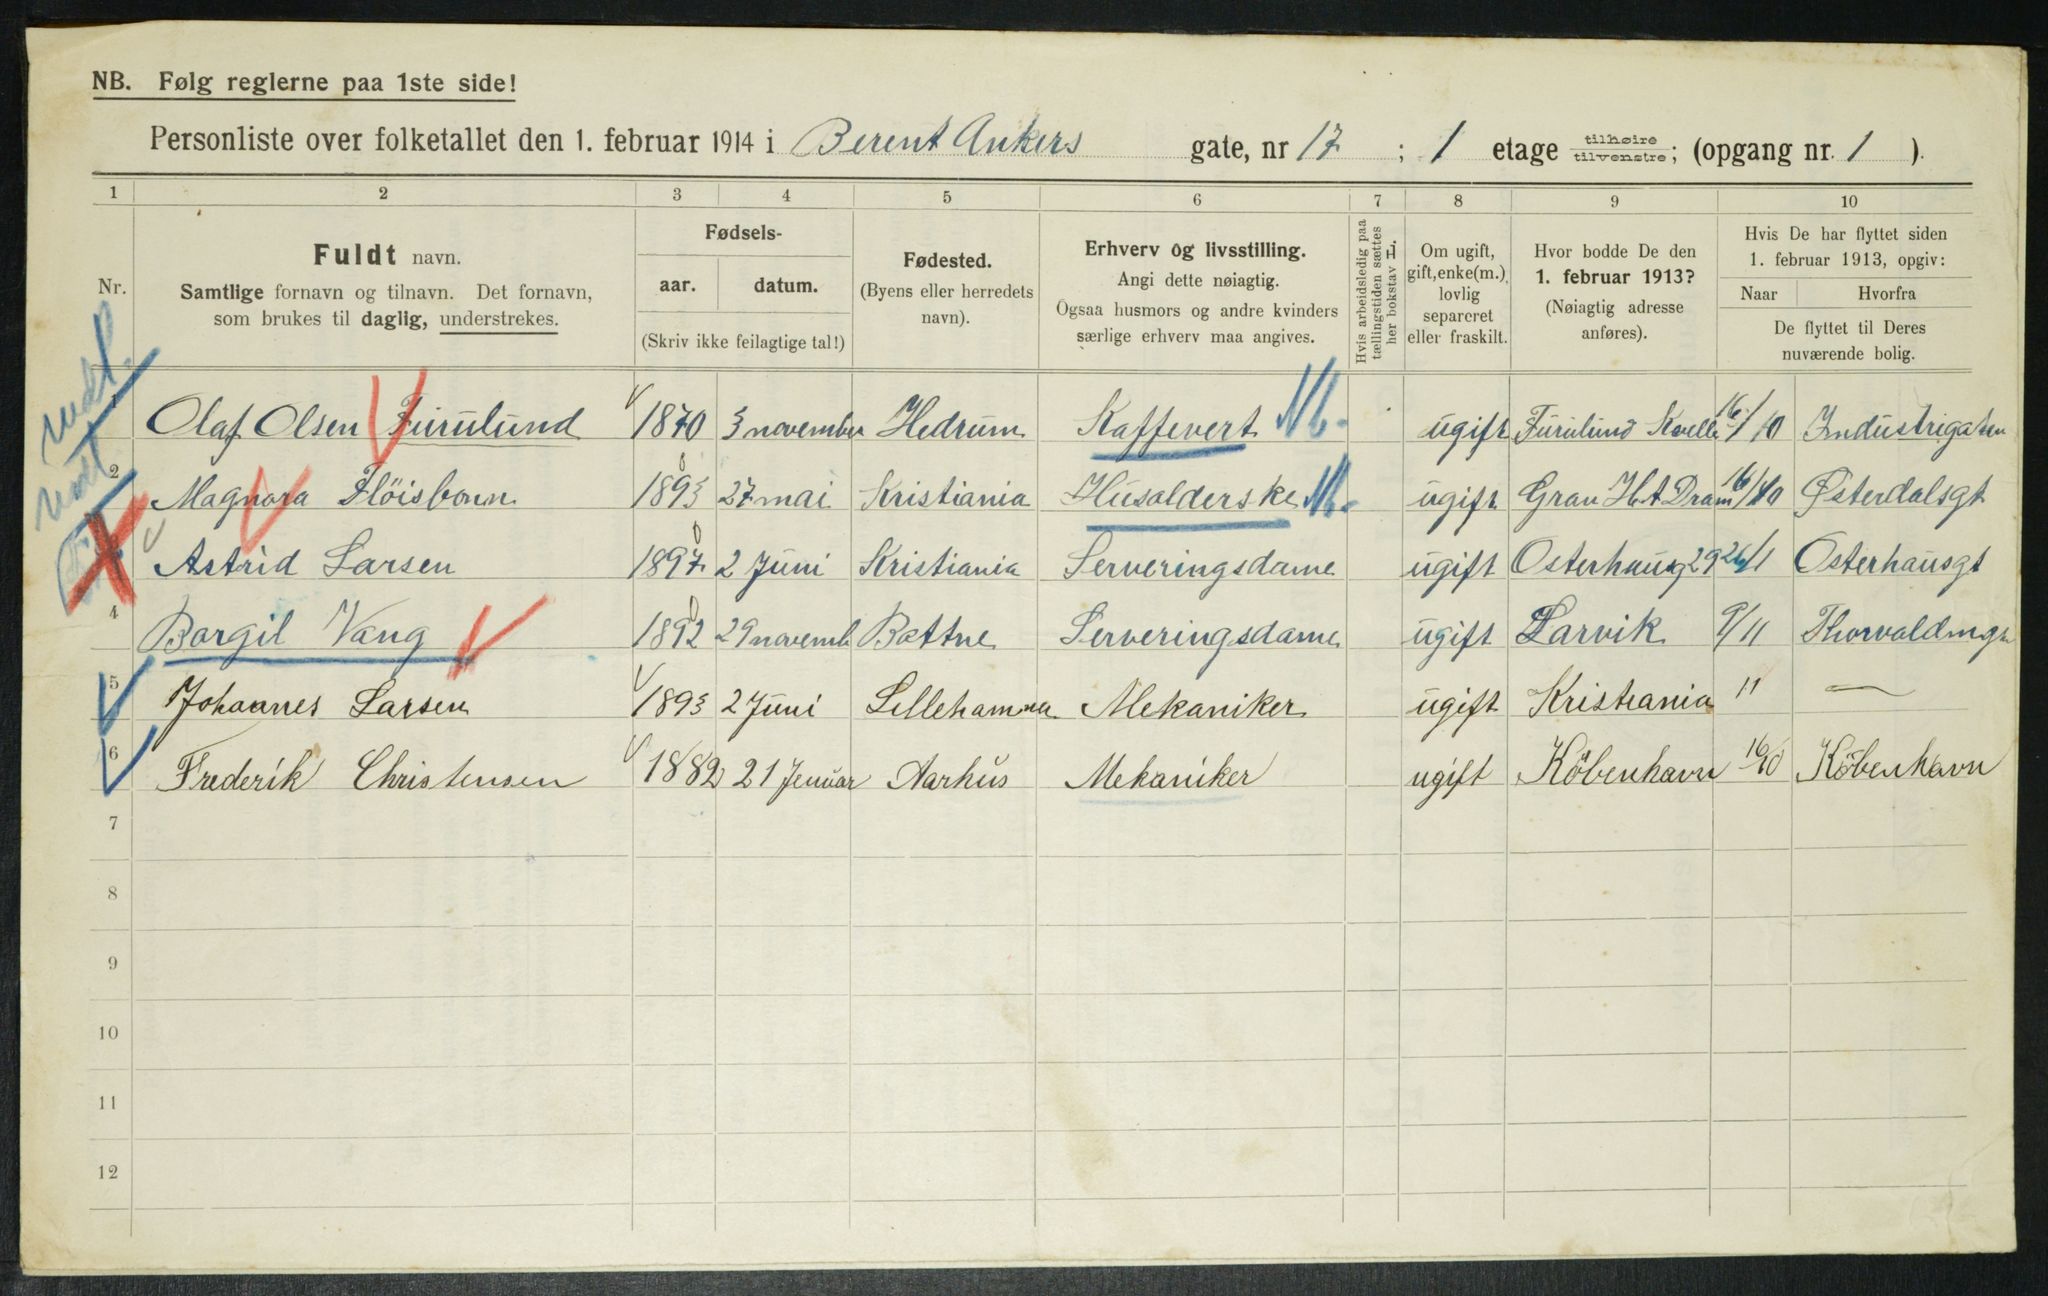 NB. Følg reglerne paa 1ste side!
Personliste over folketallet den 1. februar 1914 i Berent Ankers gate, nr 17 ; 1 etage tilhøire tilvenstre; (opgang nr. 1 ).
1 2 3 4 5 6 7 8 9 10
Nr.
Fuldt navn.
Samtlige fornavn og tilnavn. Det fornavn,
som brukes til daglig, understrekes.
Fødsels-
aar. datum.
(Skriv ikke feilagtige tal!)
Fødested.
(Byens eller herredets
navn).
Erhverv og livsstilling.
Angi dette nøiagtig.
Ogsaa husmors og andre kvinders
særlige erhverv maa angives.
Hvis arbeidsledig paa
tællingstiden sættes
her bokstav L.
Om ugift,
gift, enke(m.),
lovlig
separeret
eller fraskilt.
Hvor bodde De den
1. februar 1913?
(Nøiagtig adresse
anføres).
Hvis De har flyttet siden
1. februar 1913, opgiv:
Naar Hvorfra
De flyttet til Deres
nuværende bolig.
1 Olaf Olsen Furulund 1870 3 november Hedrum Kaffevert Nb. ugift Furulund Kvelle 16/10 Industrigaten
2 Magnora Flöisbonn 1893 27 mai Kristiania Husolderske Nb. ugift Grau H.A Dram 16/10 Østerdalsgt
Astrid Larsen 1897 2 Juni Kristiania Serveringsdame ugift Osterhausg 29 26/1 Osterhausgt
4 Borgil Vang 1892 29 novemb Bottne Serveringsdame ugift Larvik 9/11 Thorvaldmgt
5 Johannes Larsen 1893 2 Juni Lillehammer Mekaniker ugift Kristiania 11 —
6 Frederik Christensen 1882 21 Jenuar Aarhus Mekaniker ugift Köbenhavn 16/10 Köbenhavn
7
8
9
10
11
12